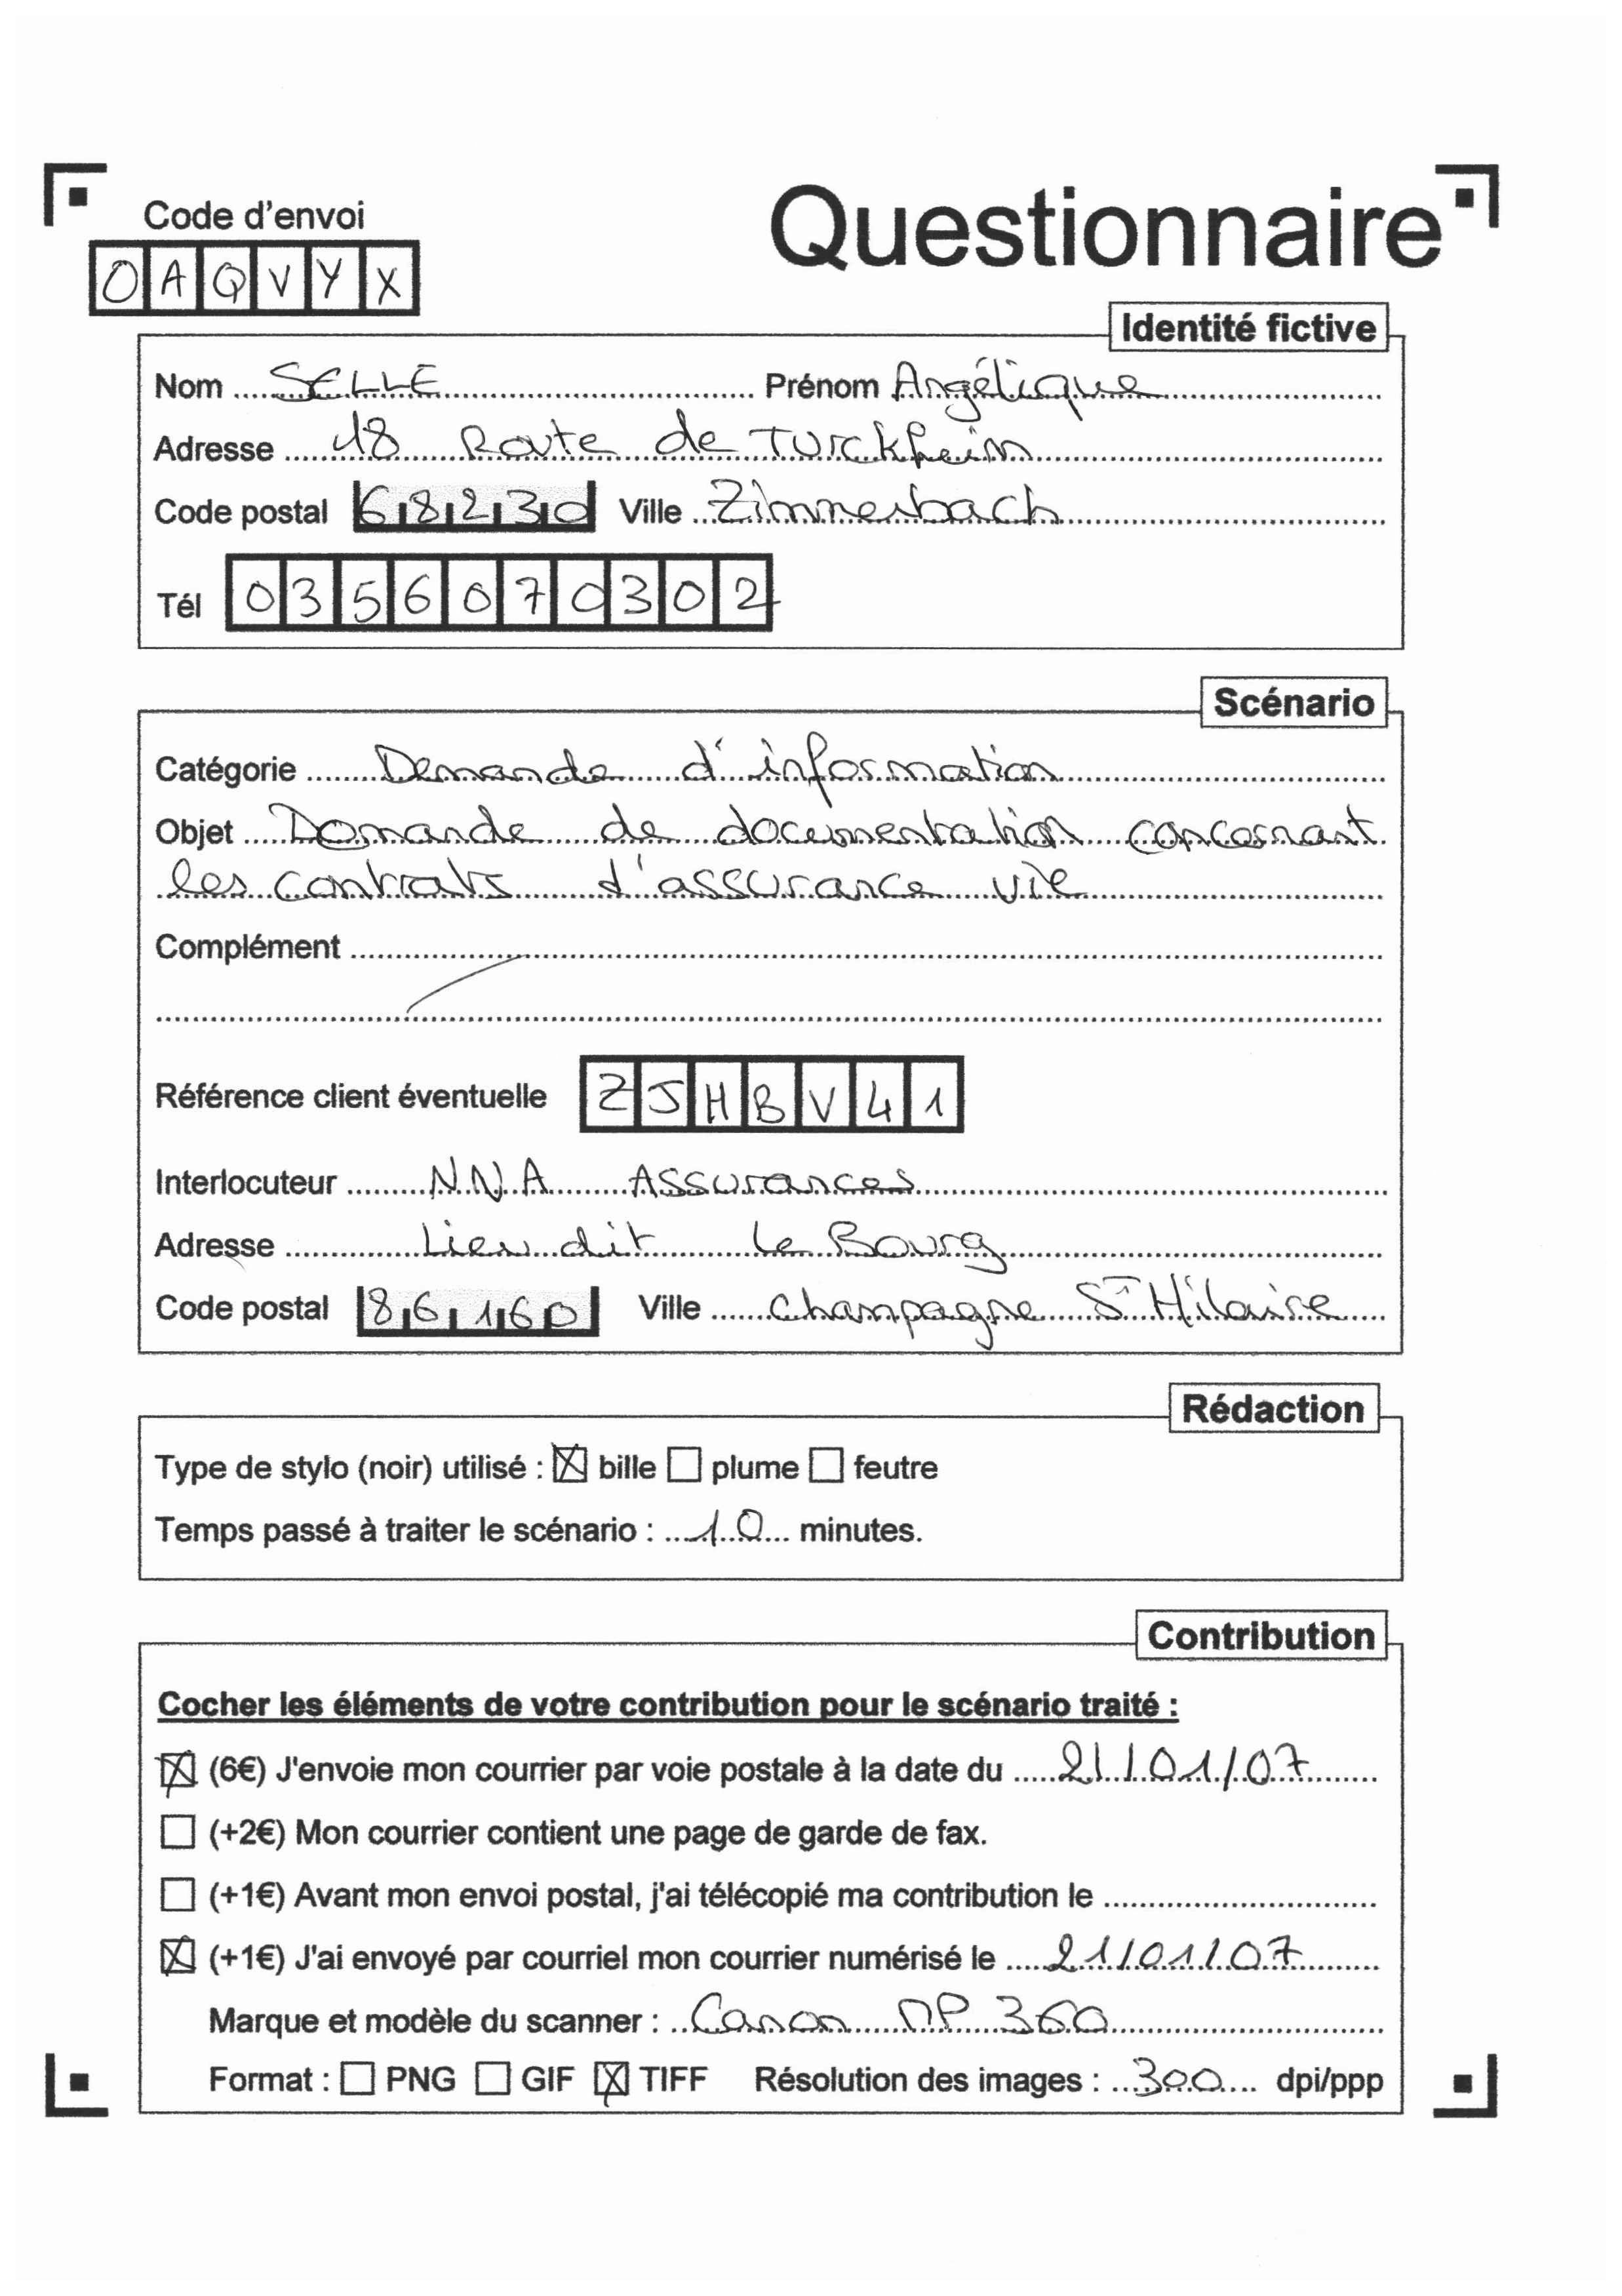 Questionnaire
Code d'envoi
OAQVYX
Identité fictive
Nom SELLE Prénom Angélique
Adresse 18 Route de Turckheim
Code postal 68230 Ville Zimmerbach
Tél 0356070302
Scénario
Catégorie Demande d'information
Objet Demande de documentation concernant
les contrats d'assurance vie
Complément
Référence client éventuelle ZJHBV41
Interlocuteur NNA Assurances
Adresse Lieu dit le Bourg
Code postal 86160 Ville Champagne St Hilaire
Rédaction
Type de stylo (noir) utilisé : bille plume feutre
Temps passé à traiter le scénario : 10 minutes.
Contribution
Cocher les éléments de votre contribution pour le scénario traité :
(6€) J'envoie mon courrier par voie postale à la date du 21/01/07
(+2€) Mon courrier contient une page de garde de fax.
(+1€) Avant mon envoi postal, j'ai télécopié ma contribution le
(+1€) J'ai envoyé par courriel mon courrier numérisé le 21/01/07
Marque et modèle du scanner : Canon MP 360
Format : PNG GIF TIFF Résolution des images : 300 dpi/ppp